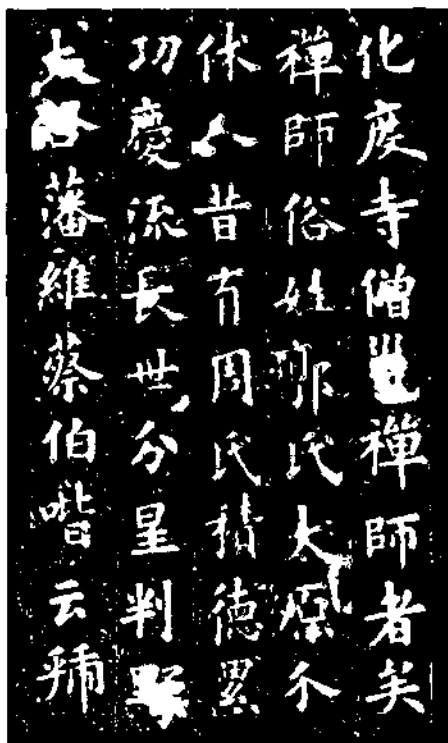 化度寺僧邕禪師者矣
禪師俗姓郭氏太原介
休人昔有周氏積德累
功慶流長世分星判野
藩維蔡伯喈云